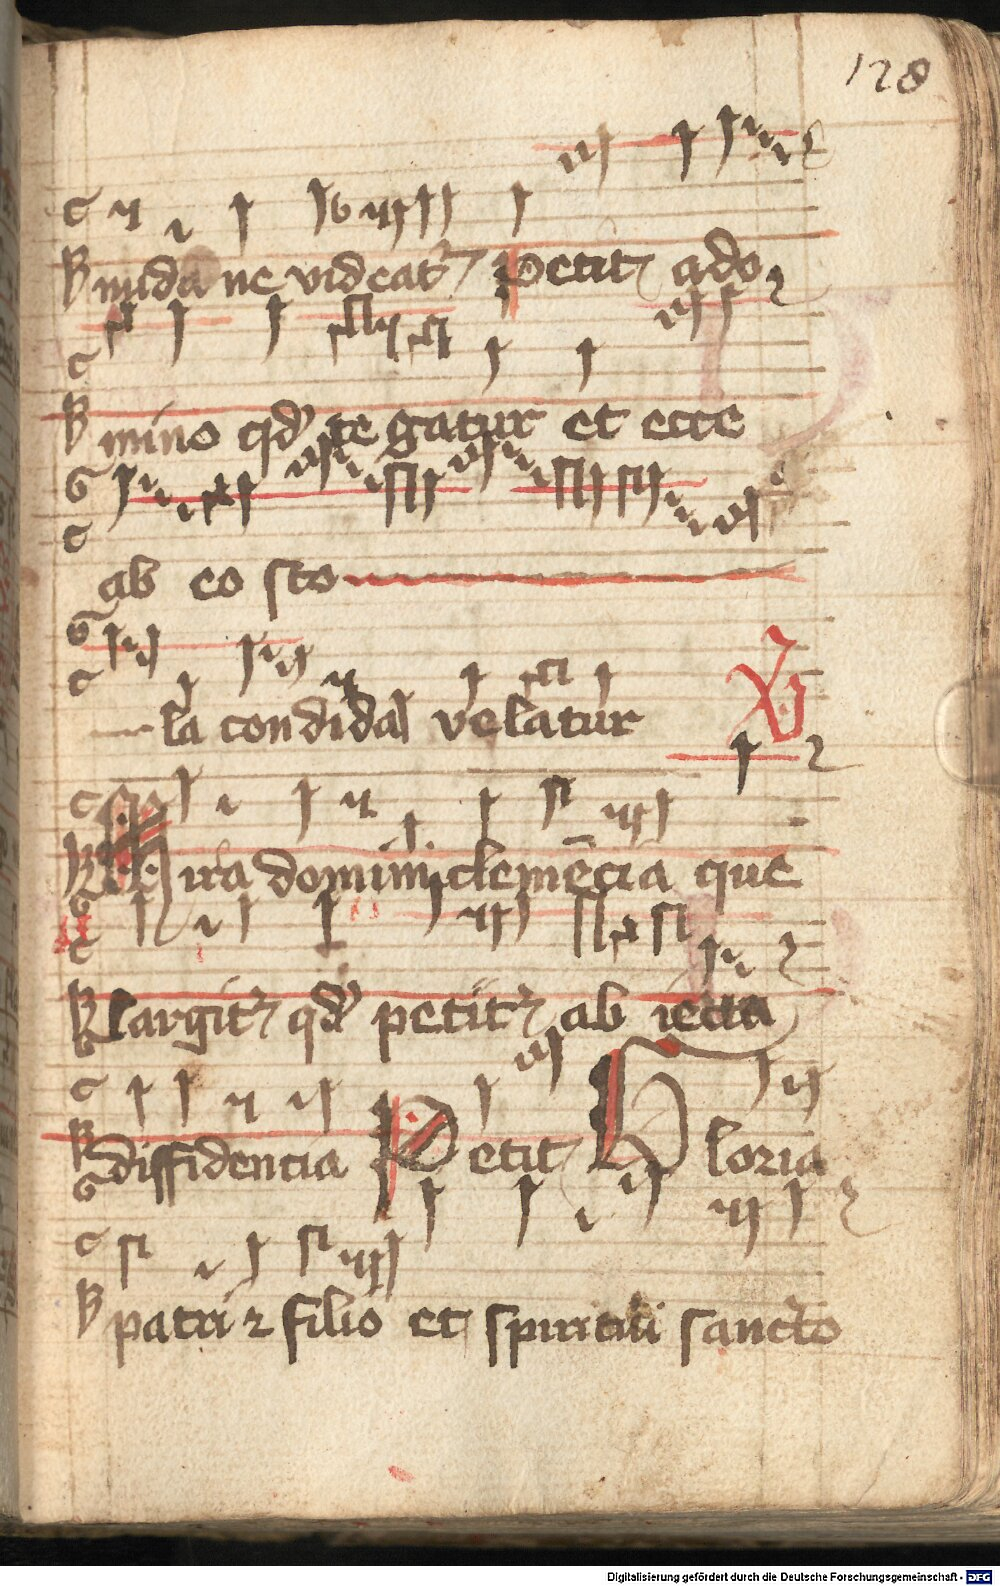 128
nuda ne videat᷑ Petit a do
mino qd̕ te gatur et ecce
ab eo sto
la condida velatur XI
Mira domini clemēcia que
largit᷑ qd̕ petit᷑ ab iecta
diffidencia Petit Gloria
patri ⁊ filio et spiritui sancto
Digitalisierung gefördert durch die Deutsche Forschungsgemeinschaft - DFG